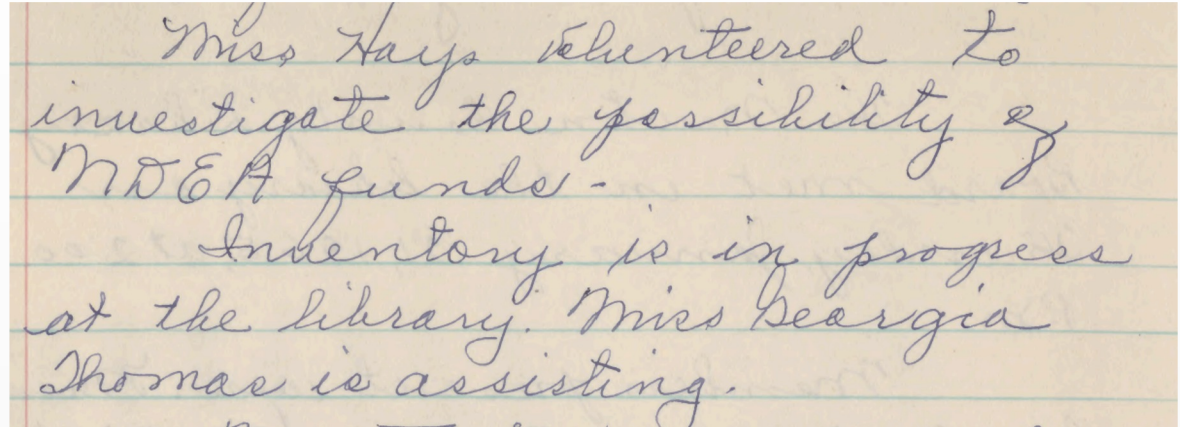 Miss Hays volunteered to
investigate the possibility of
NDEA funds -
Inventory is in progress
at the library. Miss Georgia
Thomas is assisting.